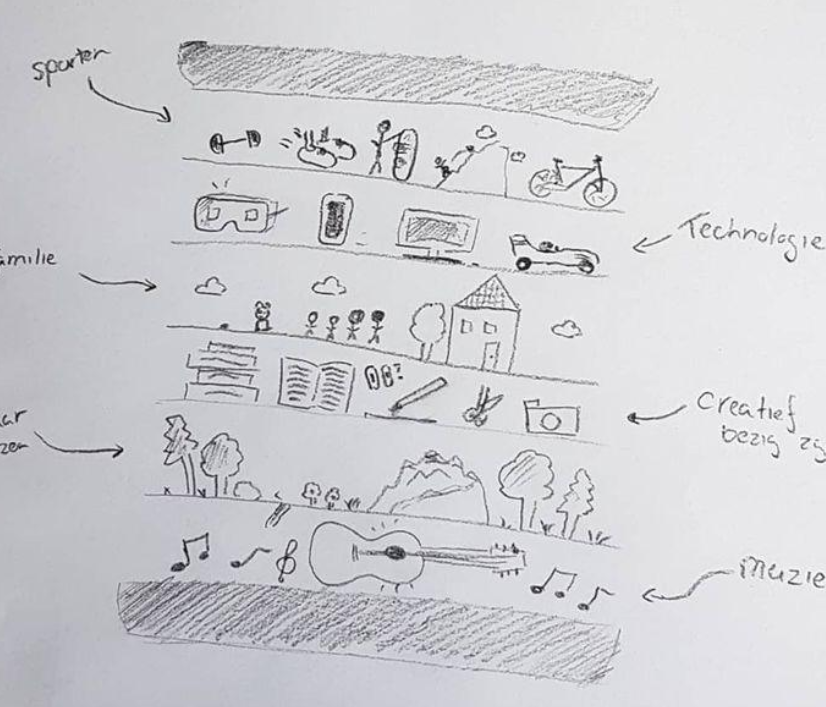 sporten
Technologie
amilie
Creatief
bezig
ar
zen
muzie